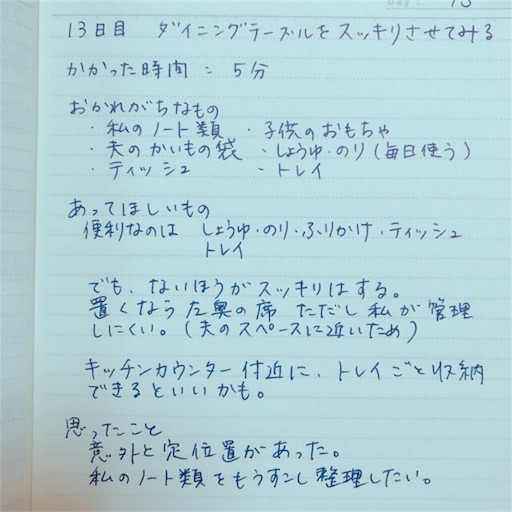 13日目 ダイニングテーブルをスッキリさせてみる
かかった時間 : 5分
おかれがちなもの
・私のノート類 ・子供のおもちゃ
・夫のかいもの袋 ・しょうゆ・のり(毎日使う)
・ティッシュ ・トレイ
あってほしいもの
便利なのは しょうゆ・のり・ふりかけ・ティッシュ
トレイ
でも、ないほうがスッキリはする。
置くなら左奥の席 ただし私が管理
しにくい。(夫のスペースに近いため)
キッチンカウンター付近に、トレイごと収納
できるといいかも。
思ったこと
意外と定位置があった。
私のノート類をもうすこし整理したい。